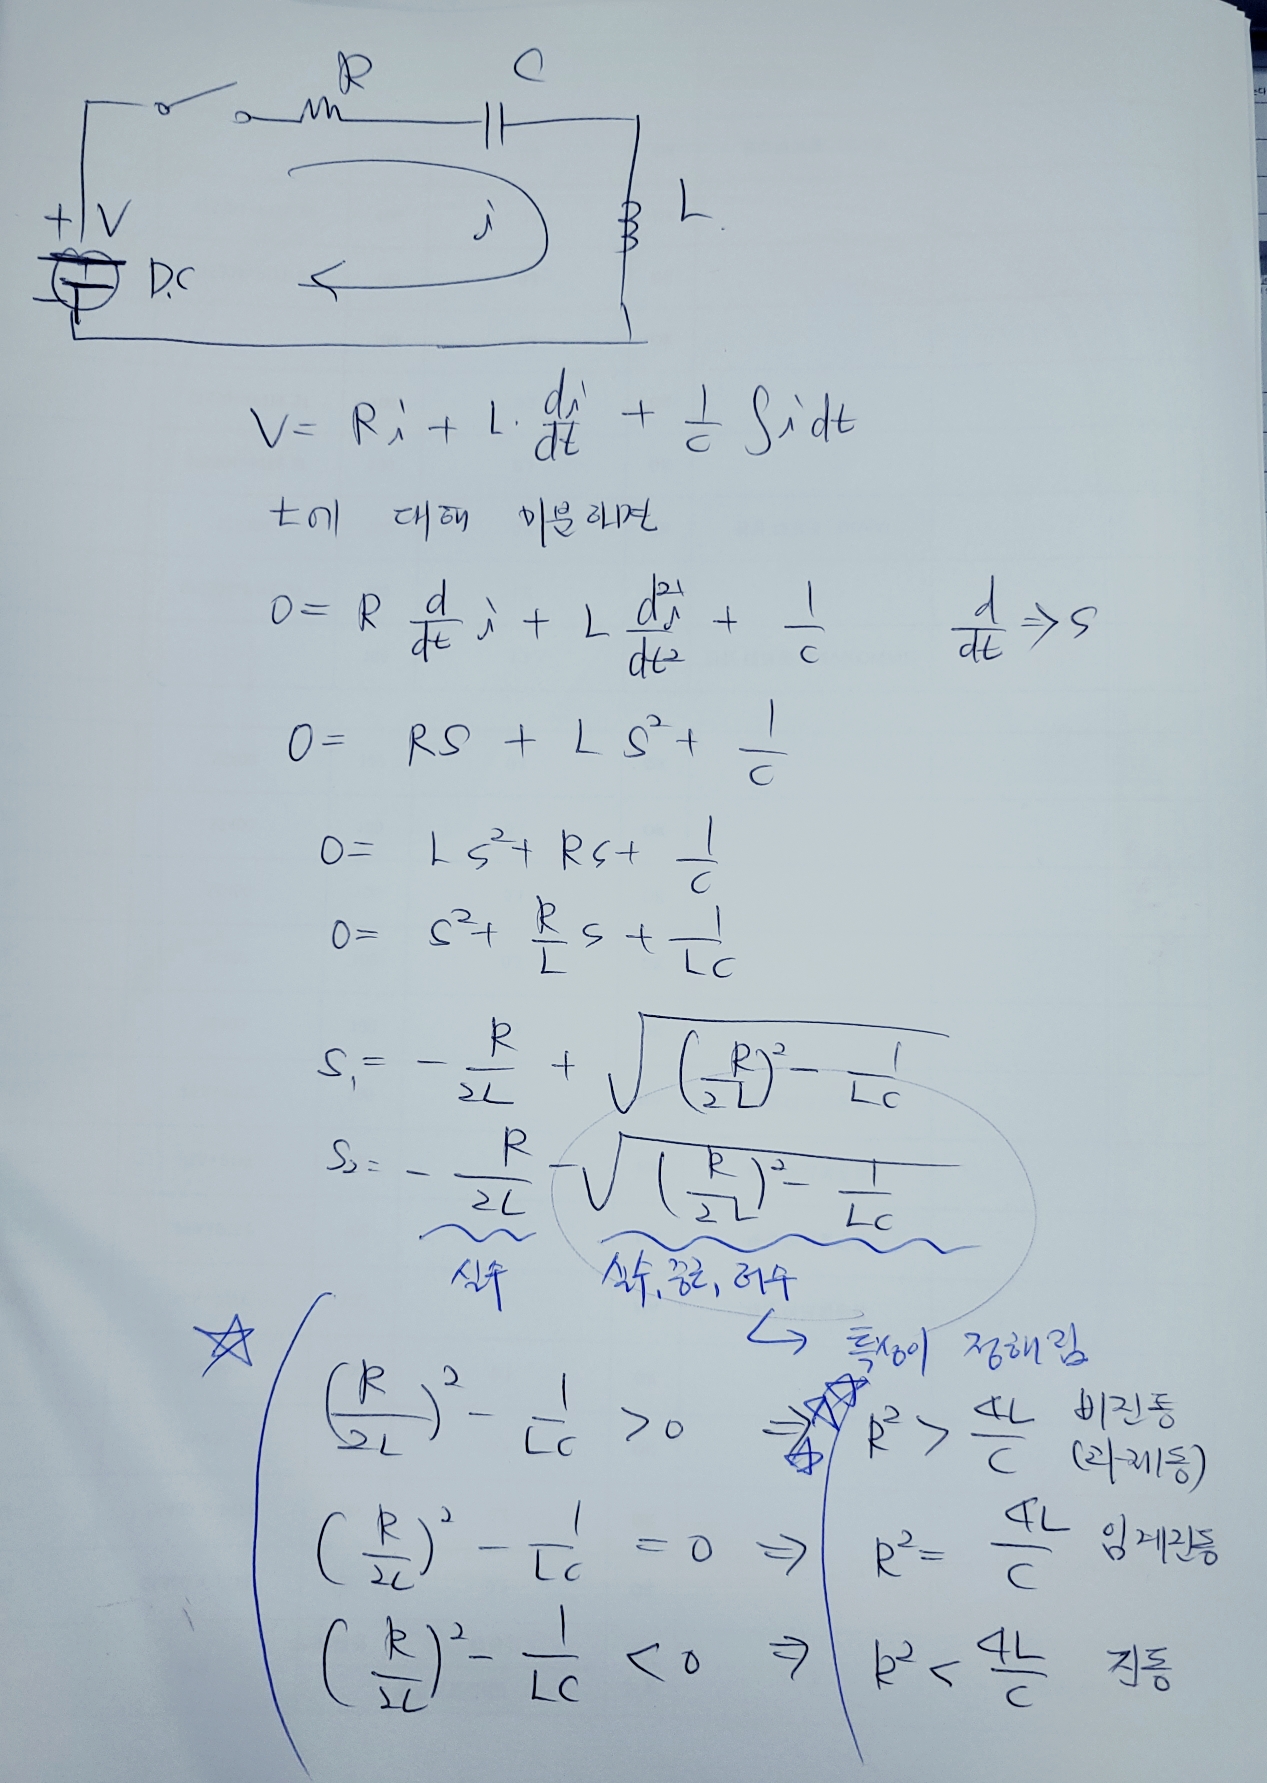 R C
+ V i L
D.C
V = Ri + L· di/dt + 1/C ∫idt
t에 대해 미분하면
0 = R d/dt i + L d²i/dt² + 1/C d/dt ⇒ S
0 = RS + LS² + 1/C
0 = LS² + RS + 1/C
0 = S² + R/L S + 1/LC
S₁ = - R/2L + √(R/2L)² - 1/LC
S₂ = - R/2L - √(R/2L)² - 1/LC
실수 실수, 중근, 허수
↳ 특성이 정해짐
☆ (R/2L)² - 1/LC > 0 ⇒ R² > 4L/C 비진동
(과제동)
(R/2L)² - 1/LC = 0 ⇒ R² = 4L/C 임계진동
(R/2L)² - 1/LC < 0 ⇒ R² < 4L/C 진동